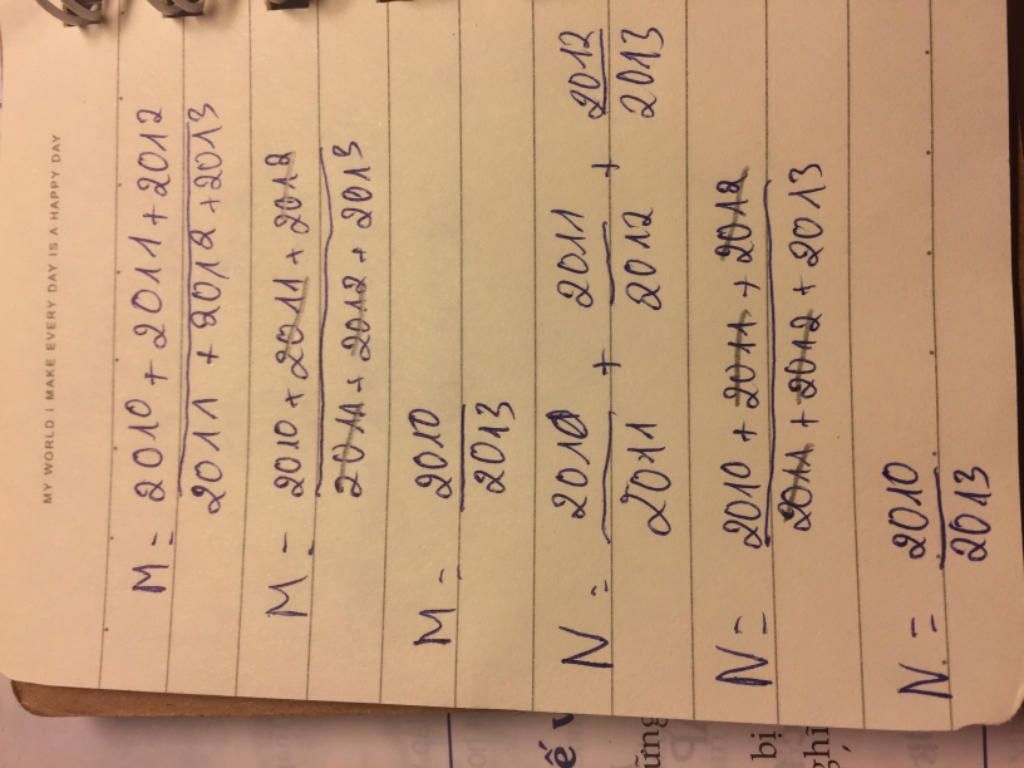 MY WORLD I MAKE EVERY DAY IS A HAPPY DAY
M = 2010 + 2011 + 2012
2011 + 2012 + 2013
M = 2010 + 2011 + 2012
2011 + 2012 + 2013
M = 2010
2013
N = 2010 + 2011 + 2012
2011 2012 2013
N = 2010 + 2011 + 2012
2011 + 2012 + 2013
N = 2010
2013